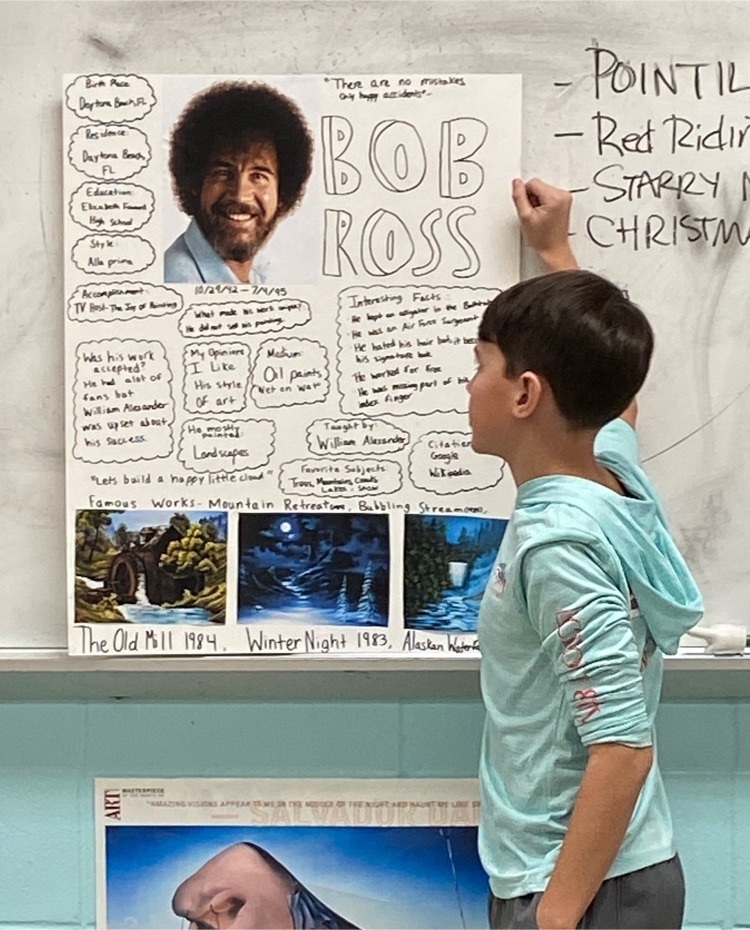 Birth Place
Daytona Beach, FL
Residence:
Daytona Beach,
FL
Education:
High School
Style:
Alla prima
Accomplishment:
TV Host-The Joy of Painting
"There are no mistakes
only happy accidents"-
BOB
ROSS
10/29/42-7/4/95
What made his work unique?
He did not sell his painting
Interesting Facts:
He kept an alligator in the
He was an Air Force Sergeant
He hated his hair but it
his signature look
He worked for free
He was missing part of his
index finger
Was his work
accepted?
He had alot of
fans but
William Alexander
was upset about
his success.
My Opinion:
I Like
His style
of art
Medium:
Oil paints
Wet on Wet
He mostly
painted:
Landscapes
Taught by:
William Alexander
Citation
Google
Wikipedia
"Lets build a happy little cloud"
Favorite Subjects:
Trees, Mountains, Clouds
Lakes, Snow
Famous Works- Mountain Retreat, Bubbling Stream
The Old Mill 1984, Winter Night 1983, Alaskan
- POINTIL
- Red Ridin
- STARRY
- CHRISTM
ART MASTERPIECE
"AMAZING VISIONS APPEAR TO US IN THE MIDDLE OF THE NIGHT AND HAUNT
SALVADOR DA